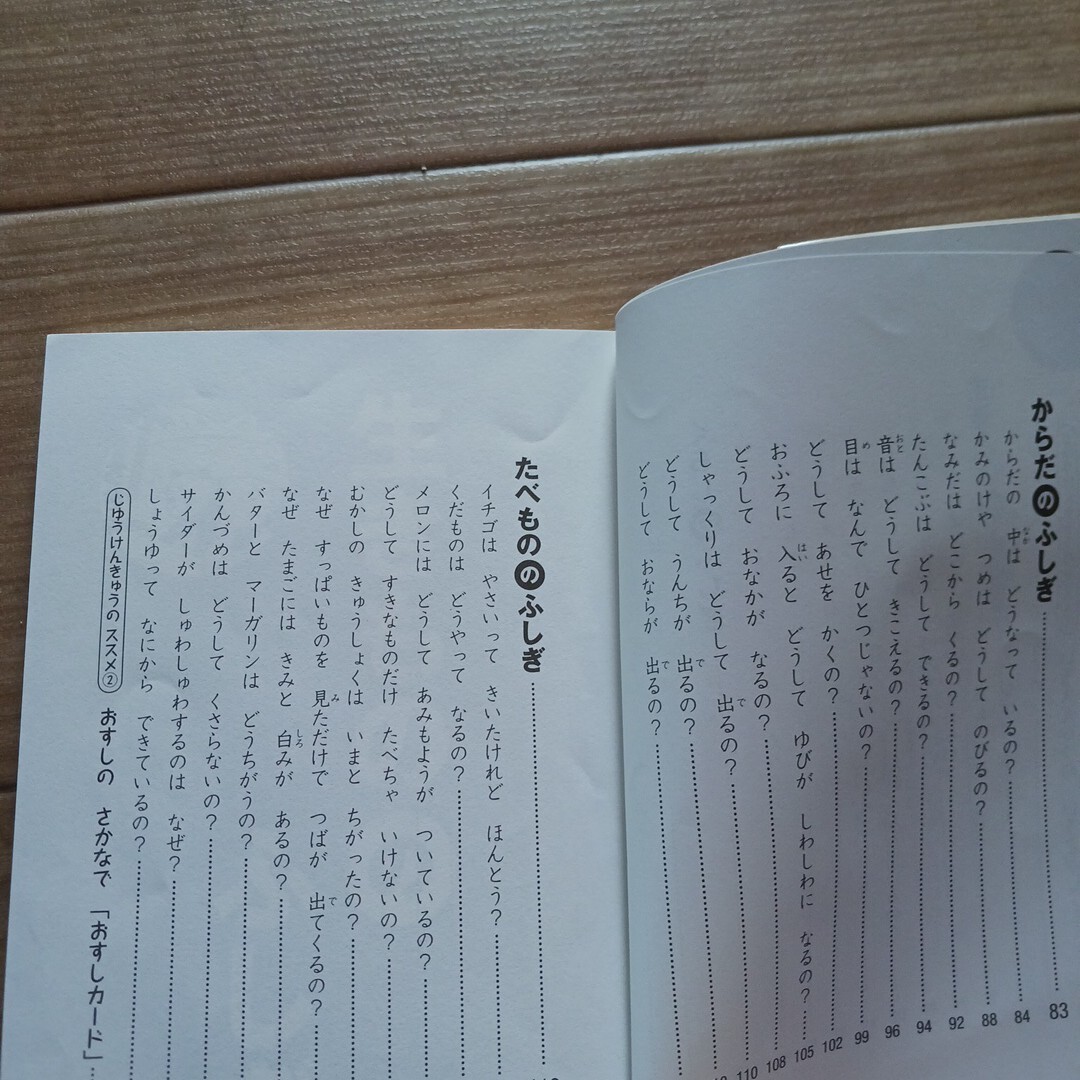 からだのふしぎ……83
からだの 中は どうなって いるの？……84
かみのけや つめは どうして のびるの？……88
なみだは どこから くるの？……92
たんこぶは どうして できるの？……94
音は どうして きこえるの？……96
目は なんで ひとつじゃないの？……99
どうして あせを かくの？……102
おふろに 入ると どうして ゆびが しわしわに なるの？……105
どうして おなかが なるの？……108
しゃっくりは どうして 出るの？……110
どうして うんちが 出るの？……
どうして おならが 出るの？……
たべもののふしぎ……
イチゴは やさいって きいたけれど ほんとう？……
くだものは どうやって なるの？……
メロンには どうして あみもようが ついているの？……
どうして すきなものだけ たべちゃ いけないの？……
むかしの きゅうしょくは いまと ちがったの？……
なぜ すっぱいものを 見ただけで つばが 出てくるの？……
なぜ たまごには きみと 白みが あるの？……
バターと マーガリンは どうちがうの？……
かんづめは どうして くさらないの？……
サイダーが しゅわしゅわするのは なぜ？……
しょうゆって なにから できているの？……
じゆうけんきゅうの ススメ② おすしの さかなで 「おすしカード」……